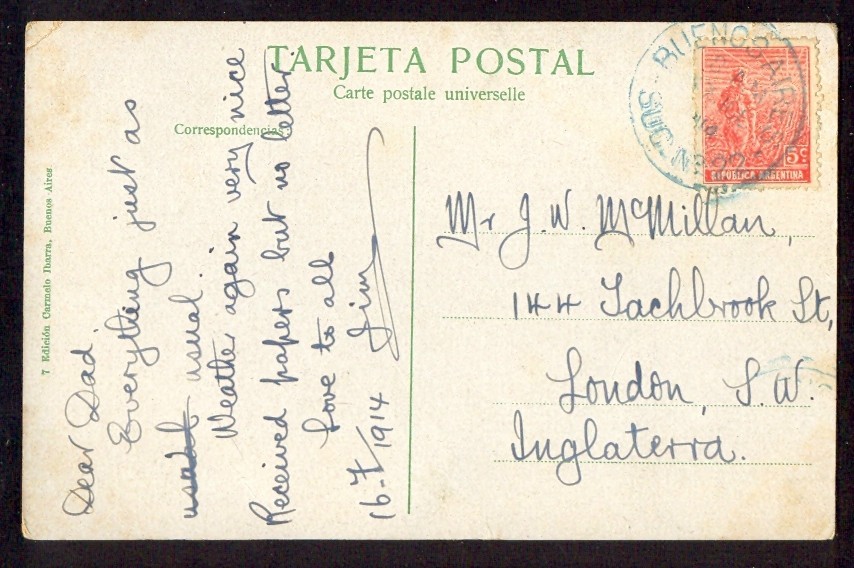 TARJETA POSTAL
Carte postale universelle
Correspondencias:
7 Edición Carmelo Ibarra, Buenos-Aires
Dear Dad.
Everything just as
usual.
Weather again very nice
Received papers but no letter
Love to all
Jim
16-7/1914
Mr J. W. McMillan,
144 Tachbrook St,
London, S.W.
Inglaterra.
BUENOS AIRES
SUC. N
5c
REPUBLICA ARGENTINA